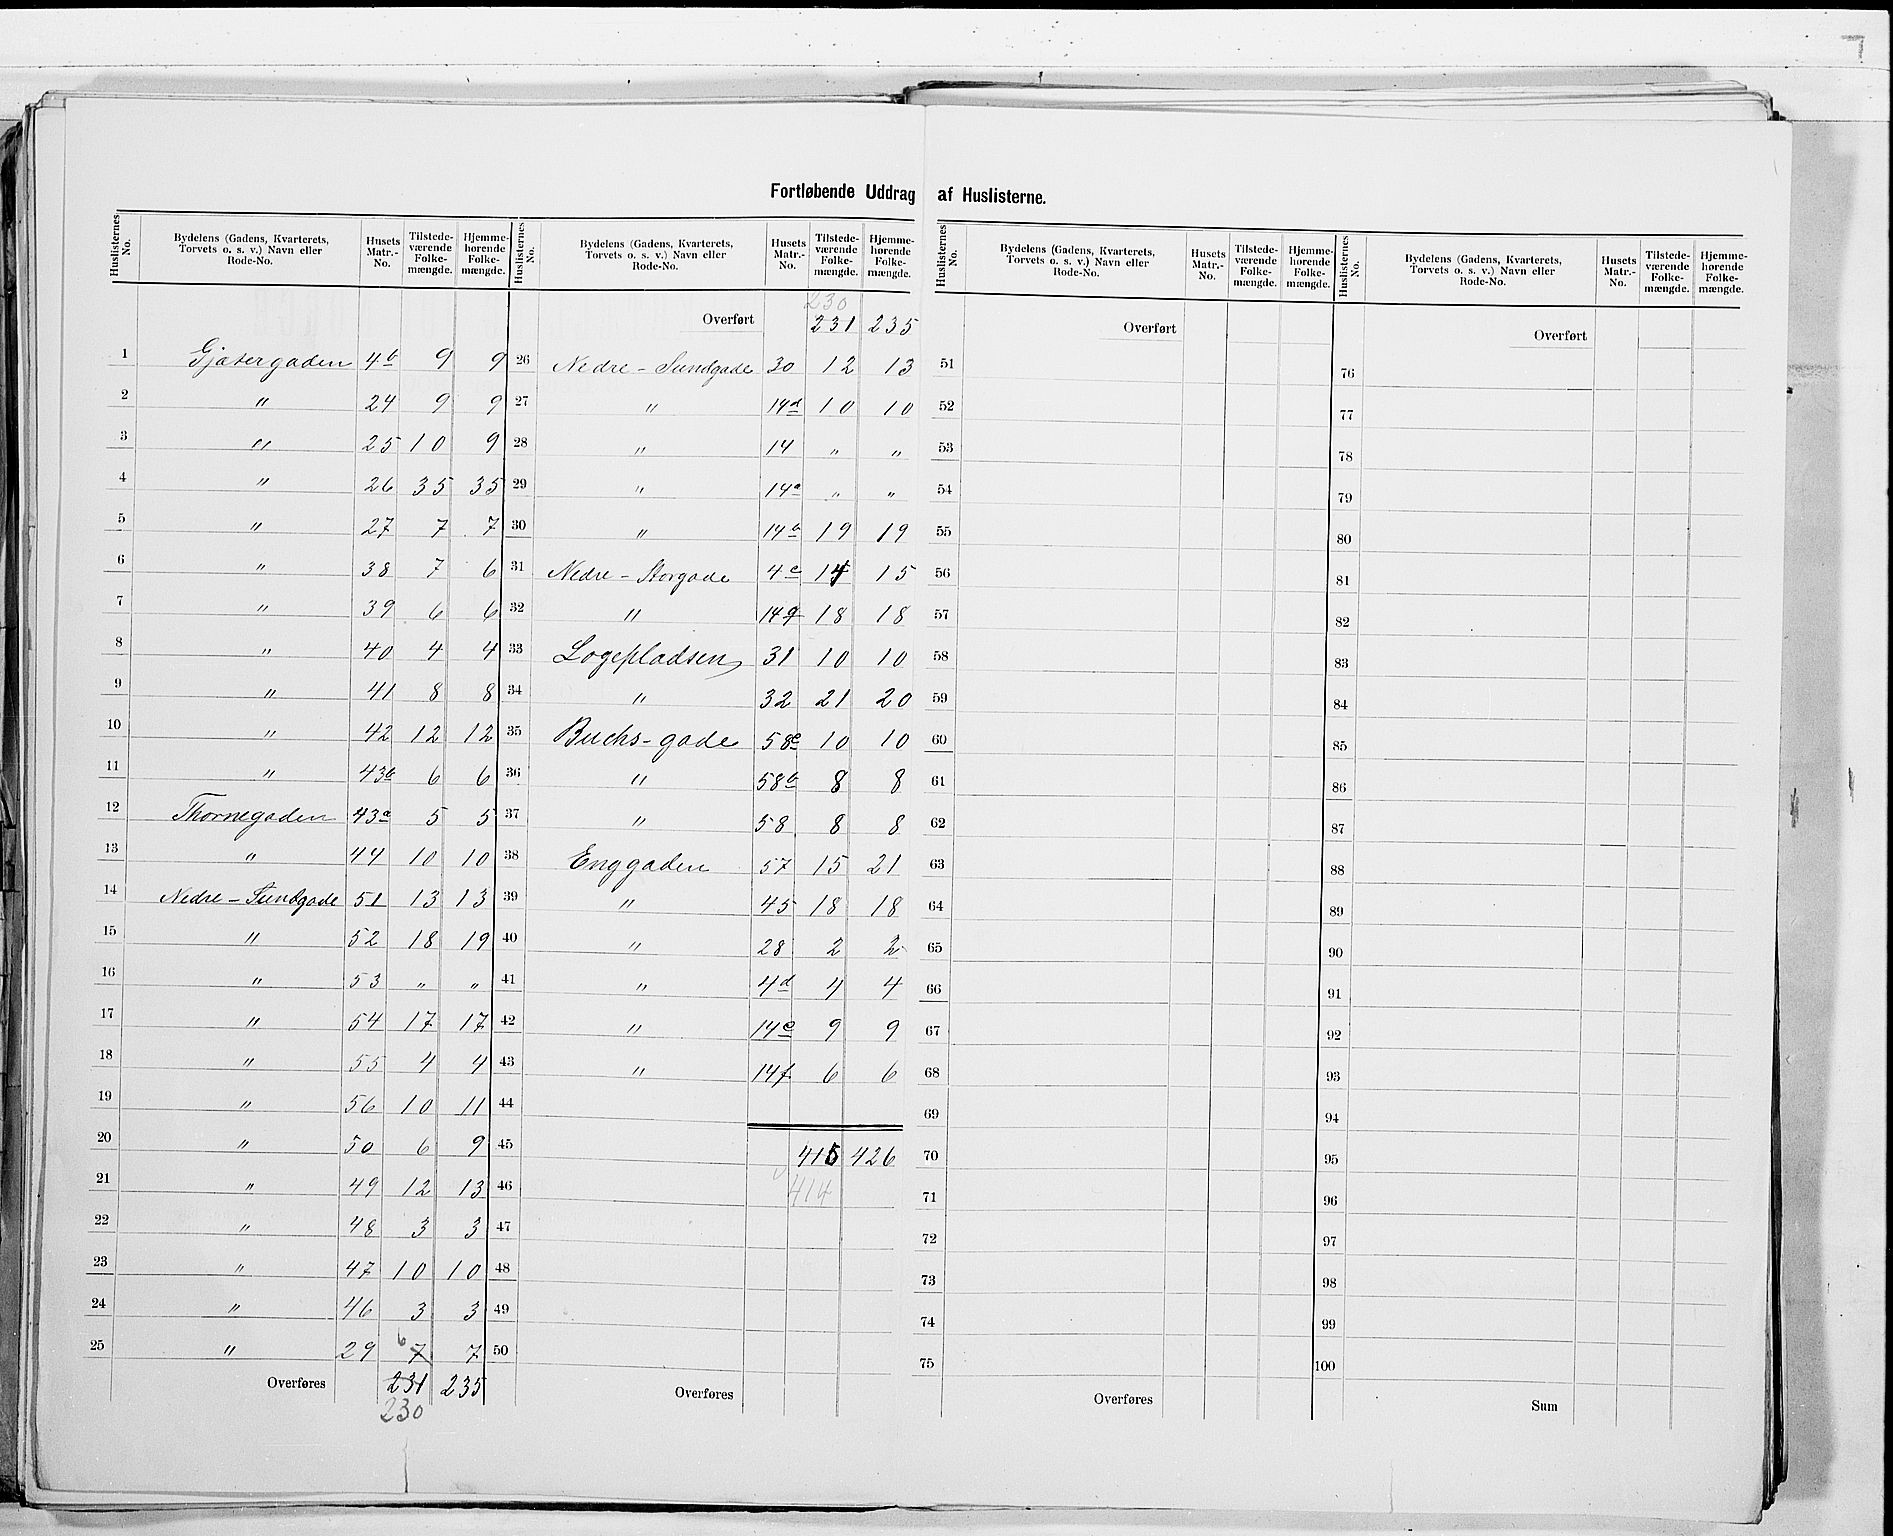 Fortløbende Uddrag af Huslisterne.
Huslisternes No. | Bydelens (Gadens, Kvarterets, Torvets o. s. v.) Navn eller Rode-No. | Husets Matr.-No. | Tilstedeværende Folkemængde. | Hjemmehørende Folkemængde.
1 Gjætergaden 4b 9 9
2 " 24 9 9
3 " 25 10 9
4 " 26 35 35
5 " 27 7 7
6 " 38 7 6
7 " 39 6 6
8 " 40 4 4
9 " 41 8 8
10 " 42 12 12
11 " 43b 6 6
12 Thornegaden 43a 5 5
13 " 44 10 10
14 Nedre-Sundgade 51 13 13
15 " 52 18 19
16 " 53 " "
17 " 54 17 17
18 " 55 4 4
19 " 56 10 11
20 " 50 6 9
21 " 49 12 13
22 " 48 3 3
23 " 47 10 10
24 " 46 3 3
25 " 29 6 7 7
Overføres 231 235
230
Huslisternes No. | Bydelens (Gadens, Kvarterets, Torvets o. s. v.) Navn eller Rode-No. | Husets Matr.-No. | Tilstedeværende Folkemængde. | Hjemmehørende Folkemængde.
230
Overført 231 235
26 Nedre-Sundgade 30 12 13
27 " 14d 10 10
28 " 14 " "
29 " 14a " "
30 " 14b 19 19
31 Nedre-Storgade 4c 14 15
32 " 14g 18 18
33 Logepladsen 31 10 10
34 " 32 21 20
35 Buchs-gade 58c 10 10
36 " 58b 8 8
37 " 58 8 8
38 Enggaden 57 15 21
39 " 45 18 18
40 " 28 2 2
41 " 4d 4 4
42 " 14e 9 9
43 " 14f 6 6
44
45 415 426
46 414
47
48
49
50
Overføres
Huslisternes No. | Bydelens (Gadens, Kvarterets, Torvets o. s. v.) Navn eller Rode-No. | Husets Matr.-No. | Tilstedeværende Folkemængde. | Hjemmehørende Folkemængde.
Overført
51
52
53
54
55
56
57
58
59
60
61
62
63
64
65
66
67
68
69
70
71
72
73
74
75
Overføres
Huslisternes No. | Bydelens (Gadens, Kvarterets, Torvets o. s. v.) Navn eller Rode-No. | Husets Matr.-No. | Tilstedeværende Folkemængde. | Hjemmehørende Folkemængde.
Overført
76
77
78
79
80
81
82
83
84
85
86
87
88
89
90
91
92
93
94
95
96
97
98
99
100
Sum